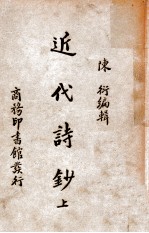 陳衍編輯
近代詩鈔上
商務印書館發行